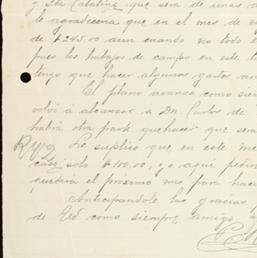 y Sta Catalina que será de unas
te agradecería que en el mes de
de $245.00 aun cuando no todo
pues los trabajos de campo en este
tengo que hacer algunos gastos
El plano avanza como
volví a alcanzar a Dn Carlos de
habrá otra parte que hacer que
Le suplico que en este me
solo $100.00, y aquí
el próximo mes para hacer
Anticipándole las gracias
de Ud como siempre amigo